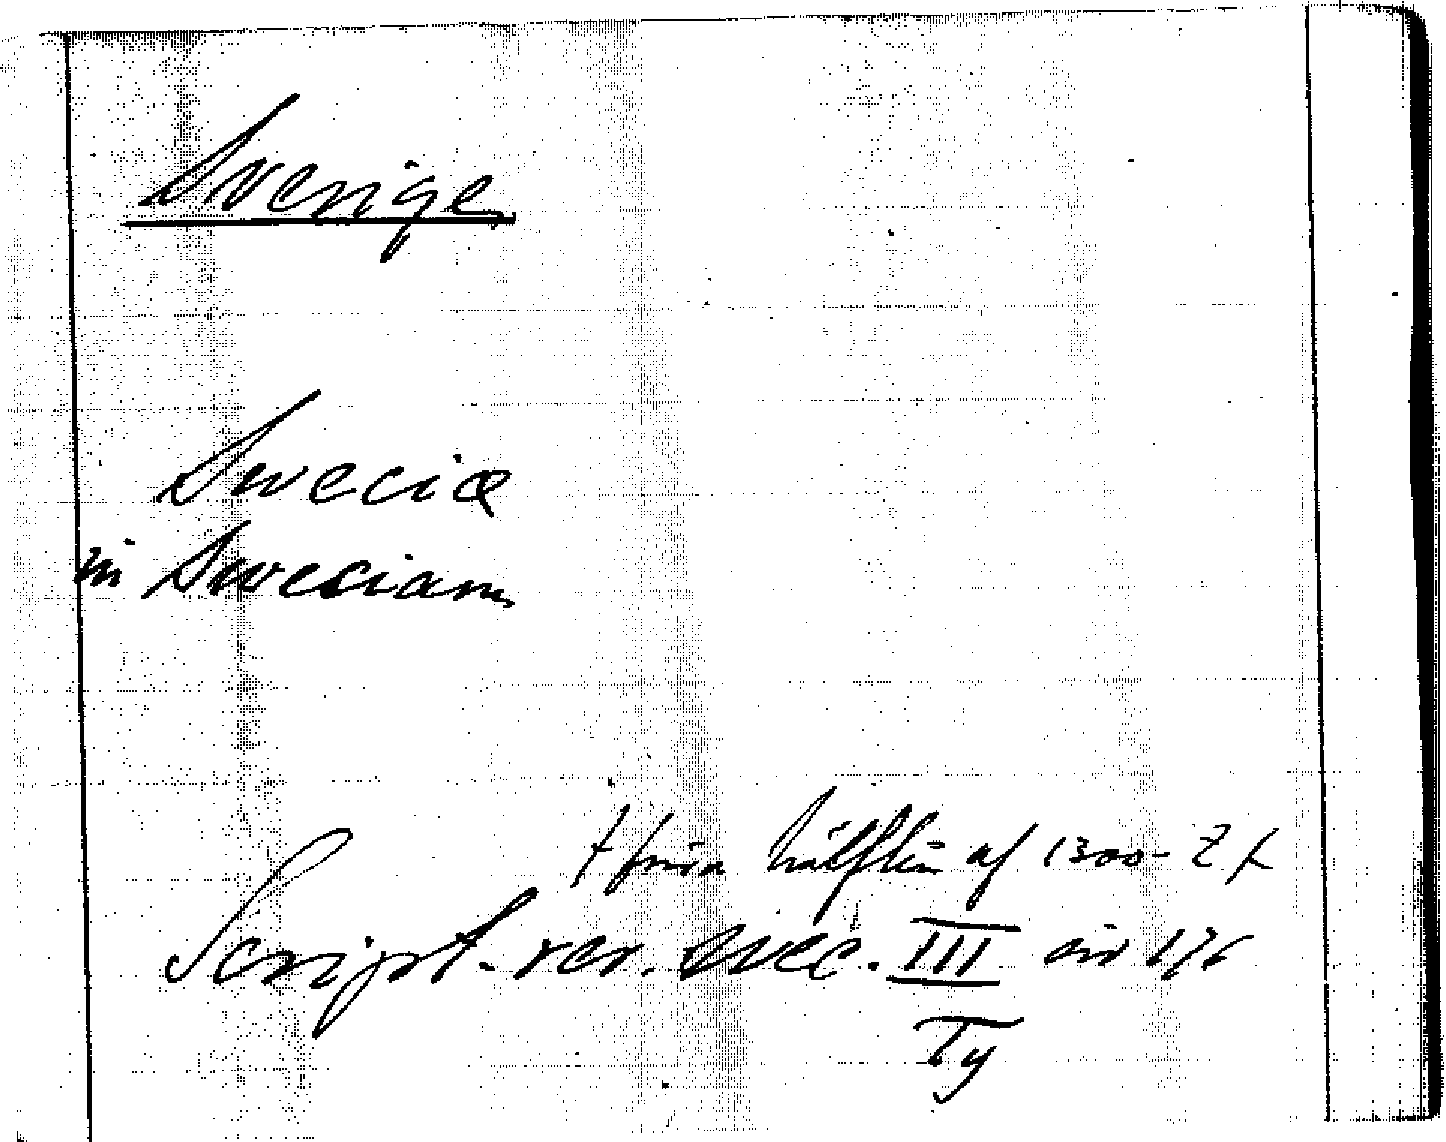 Sverige
Sweciæ
in Sweciam
förra hälften af 1300-t
Script. rer. svec. III
Ty